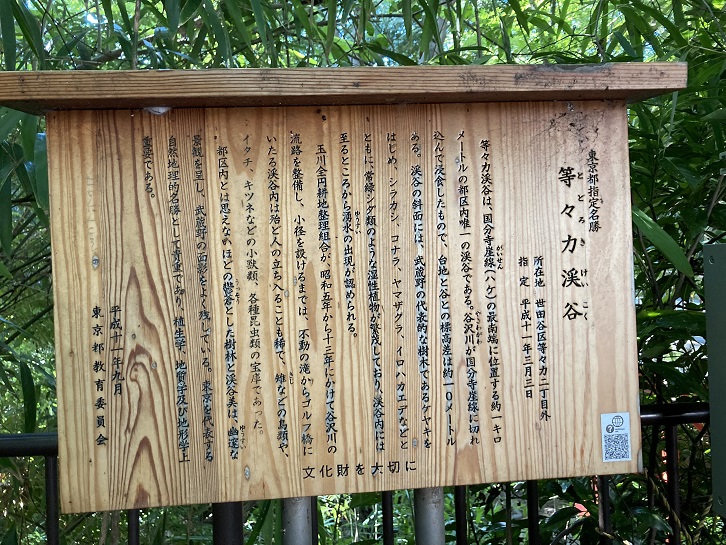 東京都指定名勝
等々力渓谷
とどろきけいこく
所在地 世田谷区等々力二丁目外
指定 平成十一年三月三日
等々力渓谷は、国分寺崖線(ハケ)の最南端に位置する約一キロ
がいせん
メートルの都区内唯一の渓谷である。谷沢川が国分寺崖線に切れ
やざわがわ
込んで浸食したもので、台地と谷との標高差は約一〇メートル
ある。渓谷の斜面には、武蔵野の代表的な樹木であるケヤキを
はじめ、シラカシ、コナラ、ヤマザグラ、イロハカエデなどと
ともに、常緑シダ類のような湿性植物が繁茂しており、渓谷内には
至るところから湧水の出現が認められる。
ゆうすい
玉川全円耕地整理組合が、昭和五年から十三年にかけて谷沢川の
流路を整備し、小径を設けるまでは、不動の滝からゴルフ橋に
いたる渓谷内は殆ど人の立ち入ることも稀で、雉などの鳥類や、
きじ
イタチ、キツネなどの小獣類、各種昆虫類の宝庫であった。
都区内とは思えないほどの鬱蒼とした樹林と渓谷美は、幽邃な
うっそう
ゆうすい
景観を呈し、武蔵野の面影をよく残している。東京を代表する
自然地理的名勝として貴重であり、植生学、地質学及び地形学上
重要である。
平成十一年九月
東京都教育委員会
文化財を大切に